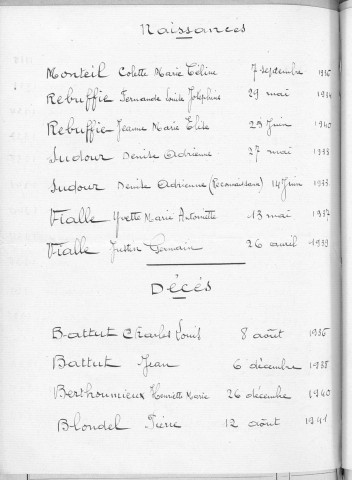 Naissances
Monteil Colette Marie Céline 7 septembre 1936
Rebuffie Fernande Louise Joséphine 29 mai 1934
Rebuffie Jeanne Marie Elise 25 juin 1940
Sudour Denise Adrienne 27 mai 1933
Sudour Denise Adrienne (Reconnaissance) 14 Juin 1933
Vialle Yvette Marie Antoinette 13 mai 1937
Vialle Justin Germain 26 avril 1939
Décés
Battut Charles Louis 8 août 1936
Battut Jean 6 décembre 1938
Berthoumieux Henriette Marie 26 décembre 1940
Blondel Pierre 12 août 1941